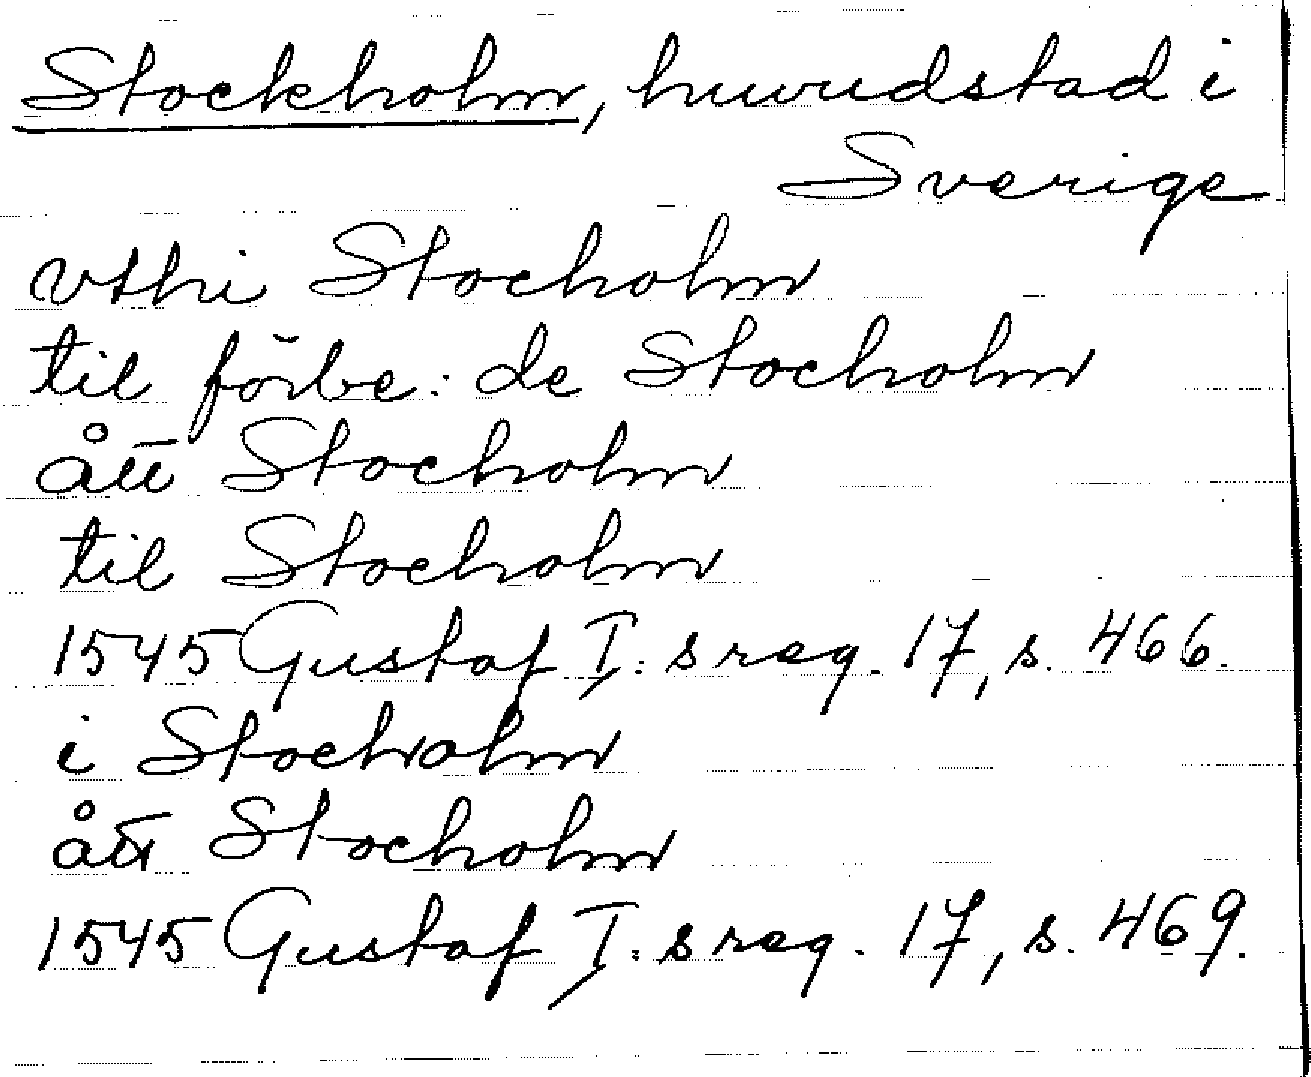 Stockholm, huvudstad i
Sverige
vthi Stocholm
til förbe: de Stocholm
ått Stocholm
til Stocholm
1545 Gustaf I:s reg. 17, s. 466.
i Stocholm
ått Stocholm
1545 Gustaf I:s reg. 17, s. 469.